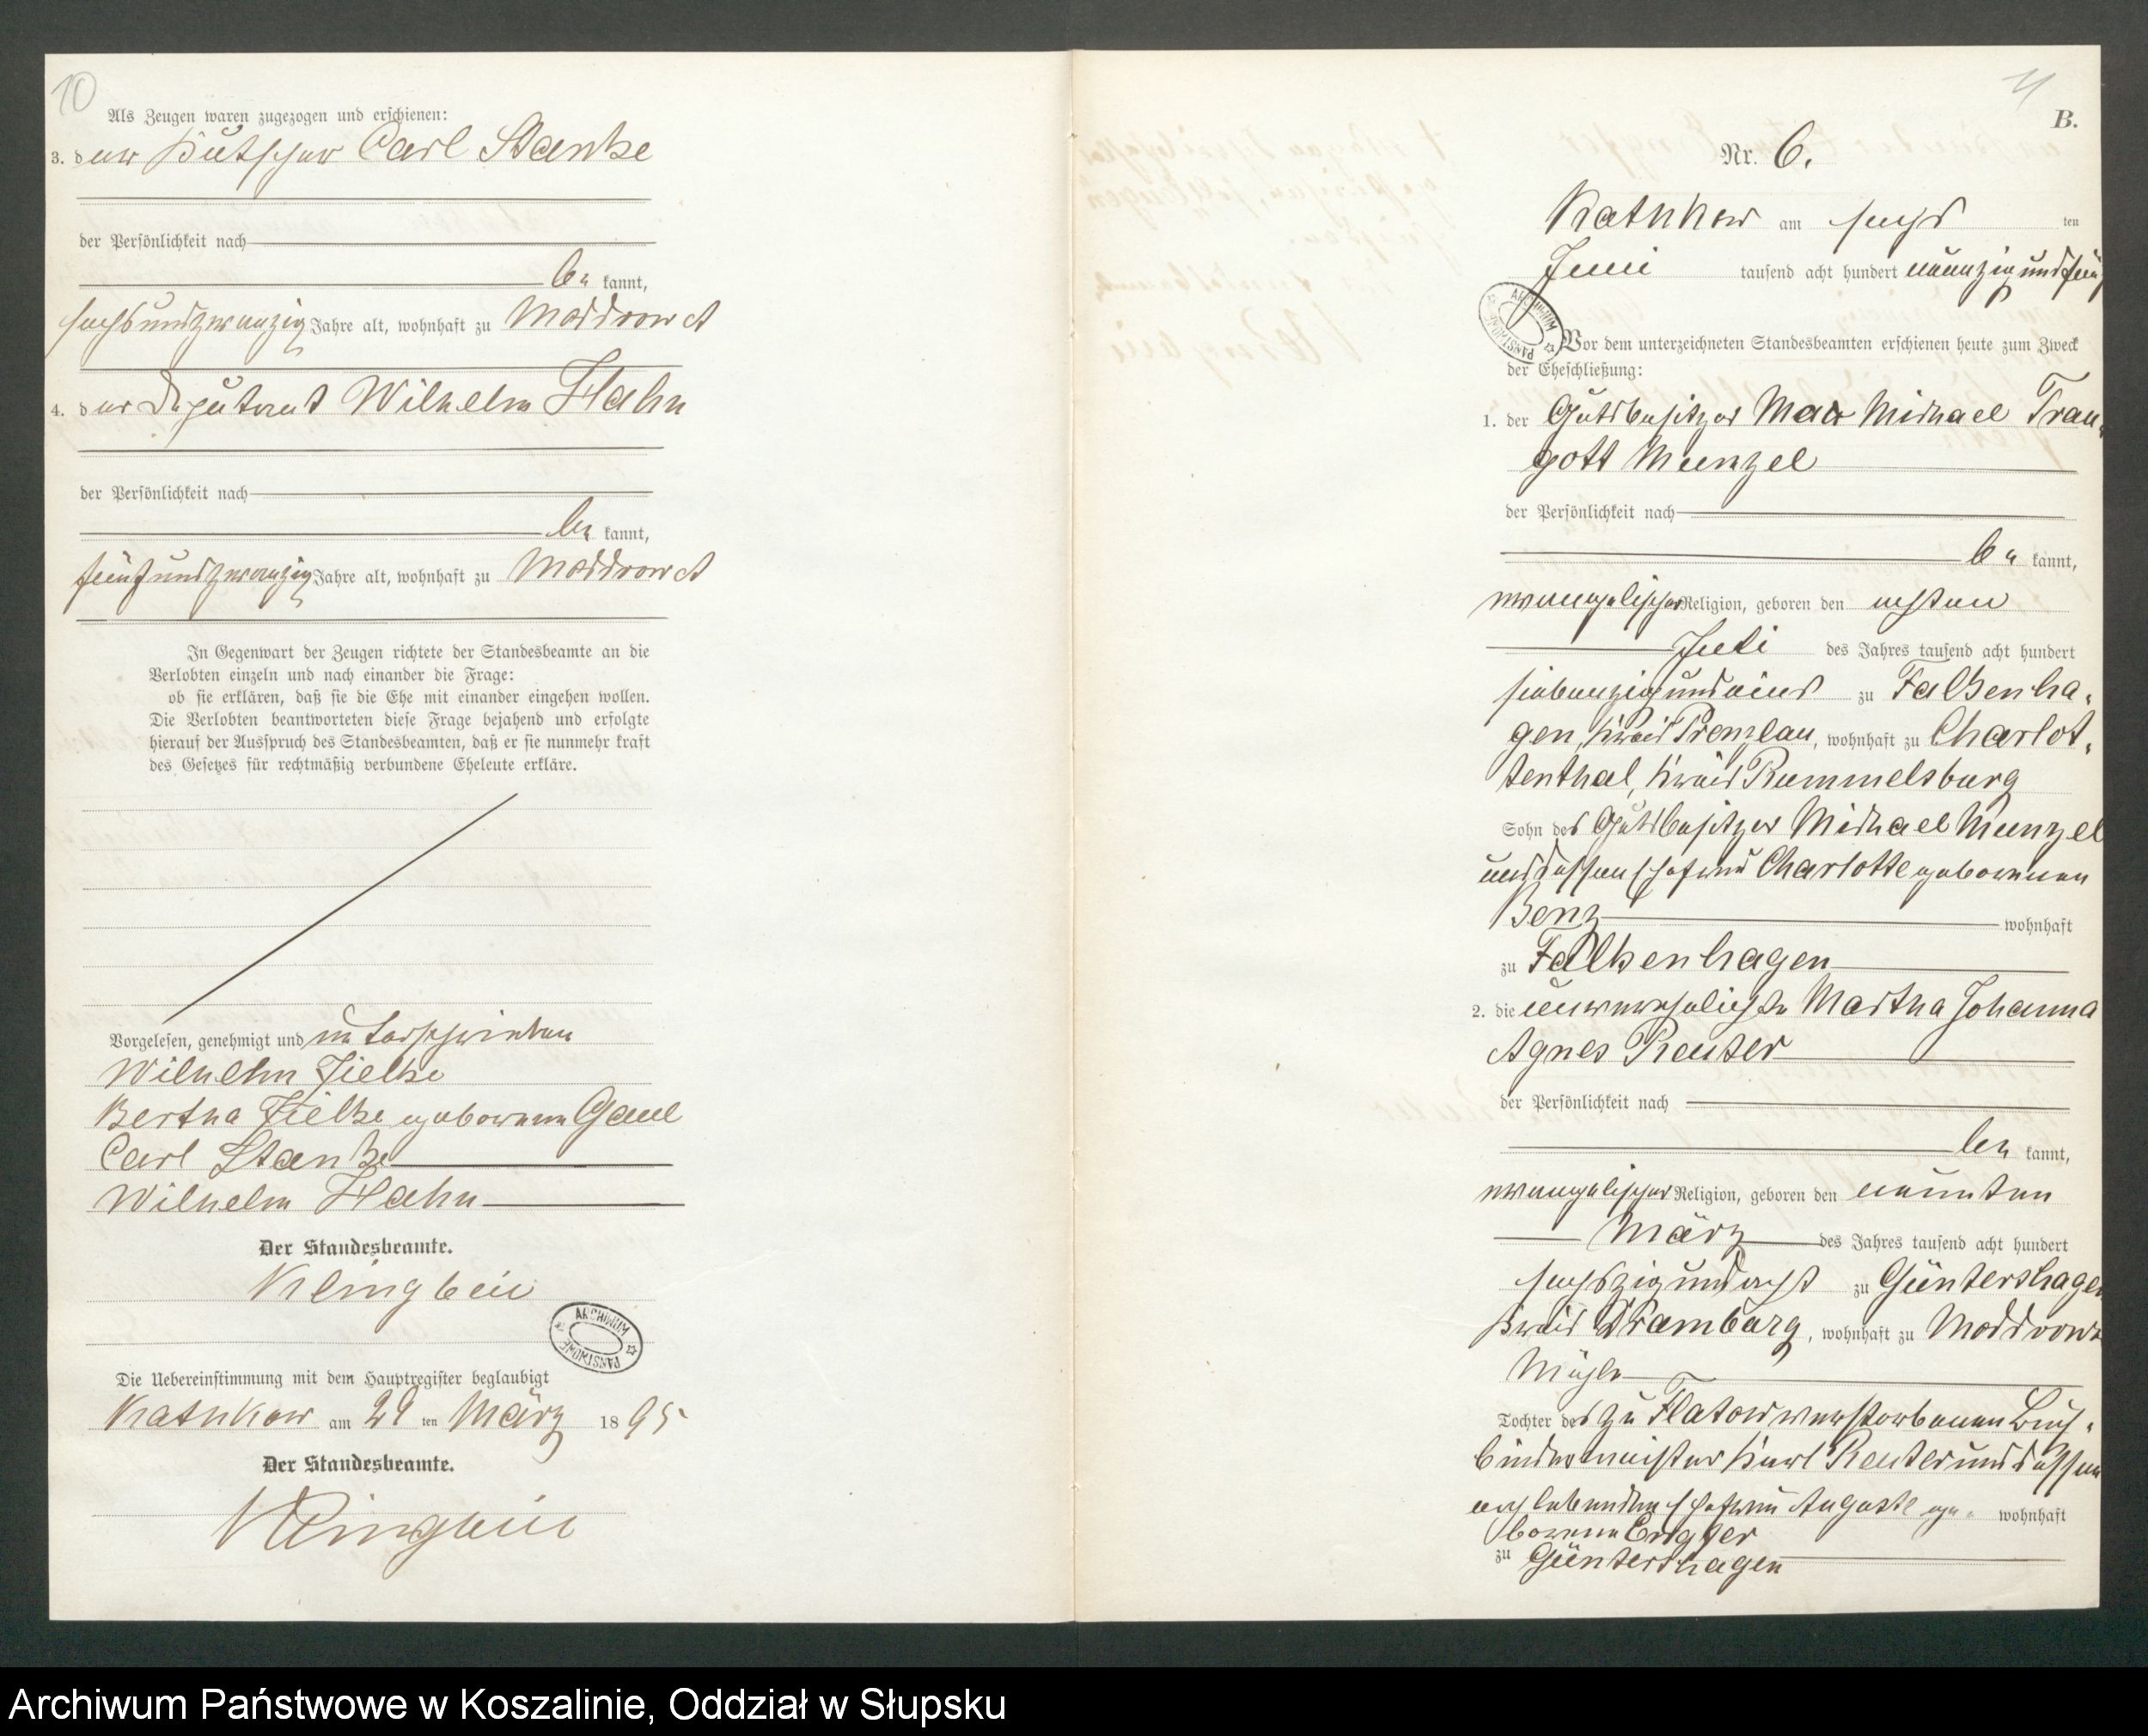 10
Als Zeugen waren zugezogen und erschienen:
3. der Kutscher Carl Stanke
der Persönlichkeit nach
be kannt,
sechsundzwanzig Jahre alt, wohnhaft zu Moddrow A
4. der Deputant Wilhelm Hahn
der Persönlichkeit nach
be kannt,
fünfundzwanzig Jahre alt, wohnhaft zu Moddrow A
In Gegenwart der Zeugen richtete der Standesbeamte an die
Verlobten einzeln und nach einander die Frage:
ob sie erklären, daß sie die Ehe mit einander eingehen wollen.
Die Verlobten beantworteten diese Frage bejahend und erfolgte
hierauf der Ausspruch des Standesbeamten, daß er sie nunmehr kraft
des Gesetzes für rechtmäßig verbundene Eheleute erkläre.
Vorgelesen, genehmigt und unterschrieben
Wilhelm Zielke
Bertha Zielke geborene Gaul
Carl Stanke
Wilhelm Hahn
Der Standesbeamte.
Klingbeil
ARCHIWUM PAŃSTWOWE
Die Uebereinstimmung mit dem Hauptregister beglaubigt
Kathkow am 29 ten März 1895
Der Standesbeamte.
Klingbeil
11
B.
Nr. 6.
Kathkow am sechs ten
Juni tausend acht hundert neunzig und fünf
ARCHIWUM PAŃSTWOWE
Vor dem unterzeichneten Standesbeamten erschienen heute zum Zweck
der Eheschließung:
1. der Gutsbesitzer Max Michael Trau-
gott Munzel
der Persönlichkeit nach
be kannt,
evangelischer Religion, geboren den ersten
Juli des Jahres tausend acht hundert
siebenzig und eins zu Falkenha-
gen, Kreis Prenzlau, wohnhaft zu Charlot-
tenthal, Kreis Rummelsburg
Sohn des Gutsbesitzer Michael Munzel
und dessen Ehefrau Charlotte geborenen
Benz wohnhaft
zu Falkenhagen
2. die unverehelichte Martha Johanna
Agnes Reuter
der Persönlichkeit nach
be kannt,
evangelischer Religion, geboren den neunten
März des Jahres tausend acht hundert
sechszig und acht zu Güntershagen
Kreis Dramburg, wohnhaft zu Moddrower
Mühle
Tochter des zu Flatow verstorbenen Buch-
bindermeister Karl Reuter und dessen
noch lebenden Ehefrau Auguste ge- wohnhaft
borene
zu Güntershagen
Archiwum Państwowe w Koszalinie, Oddział w Słupsku